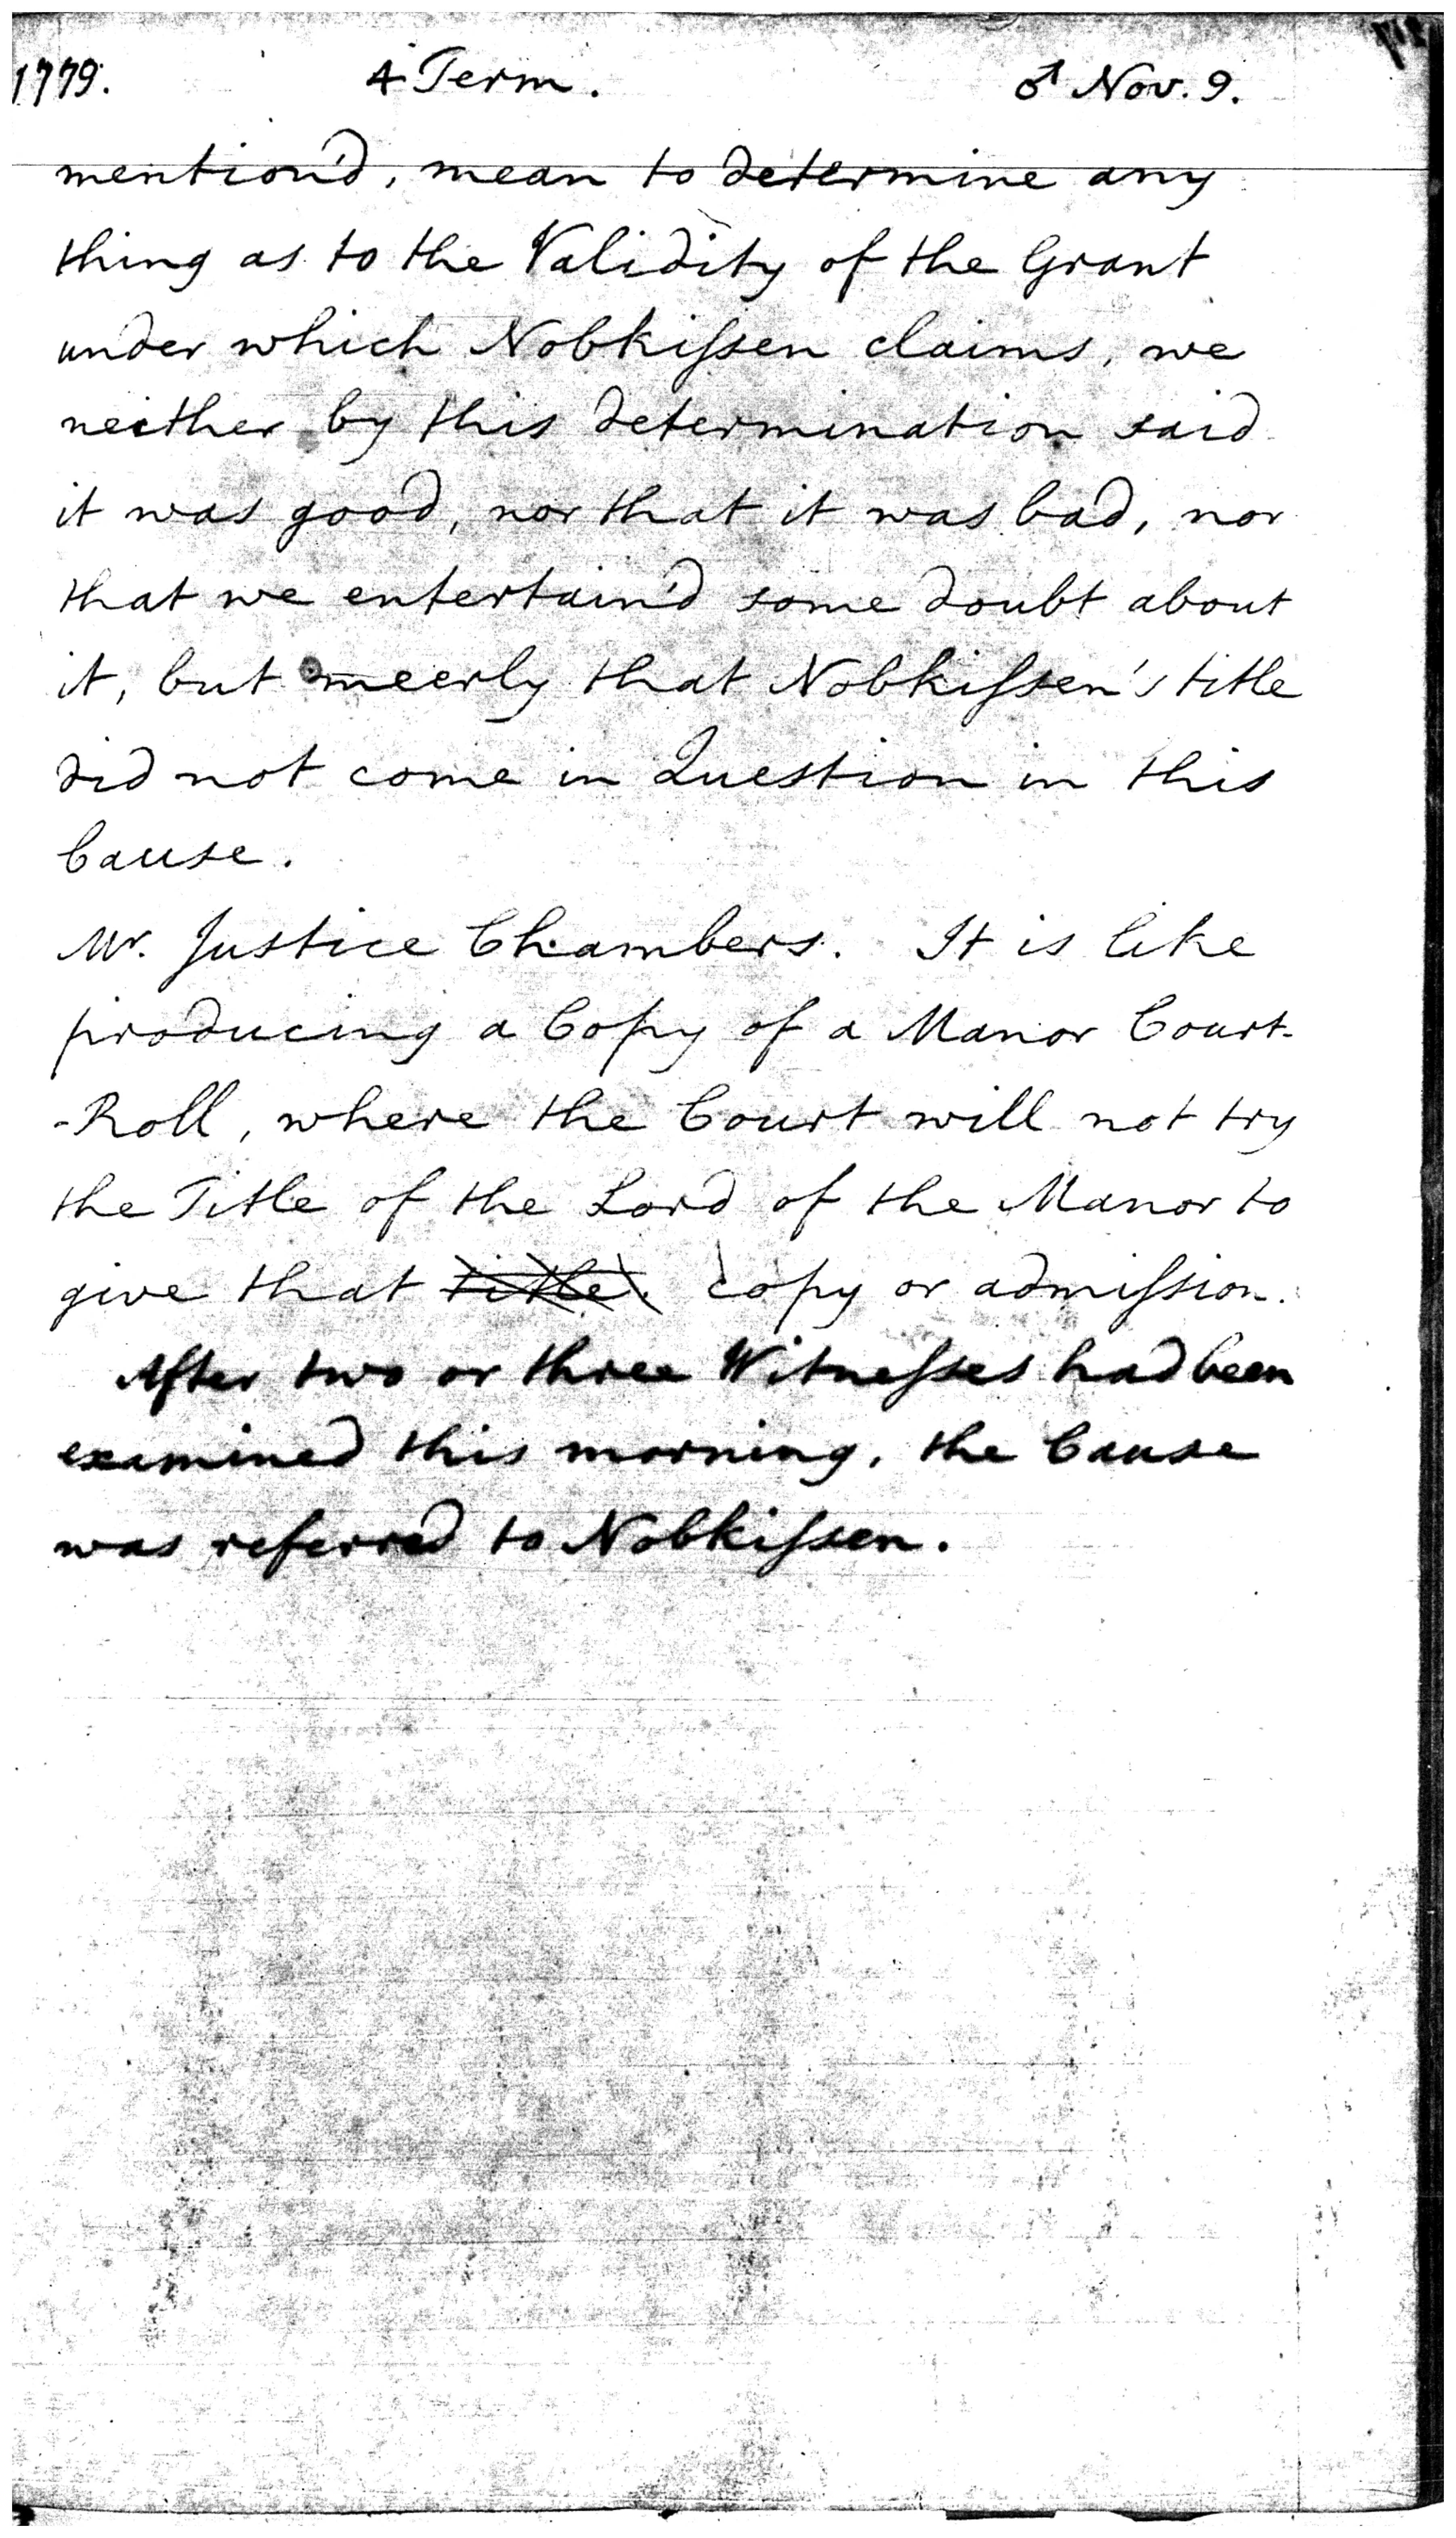 1779. 4 Term. ♂ Nov. 9.
mention'd, mean to determine any
thing as to the Validity of the Grant
under which Nobkiſsen claims, we
neither by this determination said
it was good, nor that it was bad, nor
that we entertain'd some doubt about
it, but meerly that Nobkiſsen's title
did not come in Question in this
Cause.
Mr. Justice Chambers. It is like
producing a Copy of a Manor Court-
-Roll, where the Court will not try
the Title of the Lord of the Manor to
give that title. copy or admiſsion.
After two or three Witneſses had been
examined this morning, the Cause
was referred to Nobkiſsen.